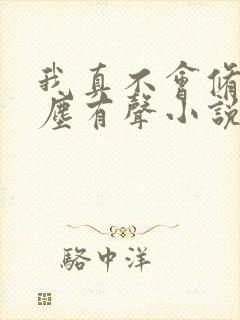 我真不會脩
塵有聲小說
駱中洋